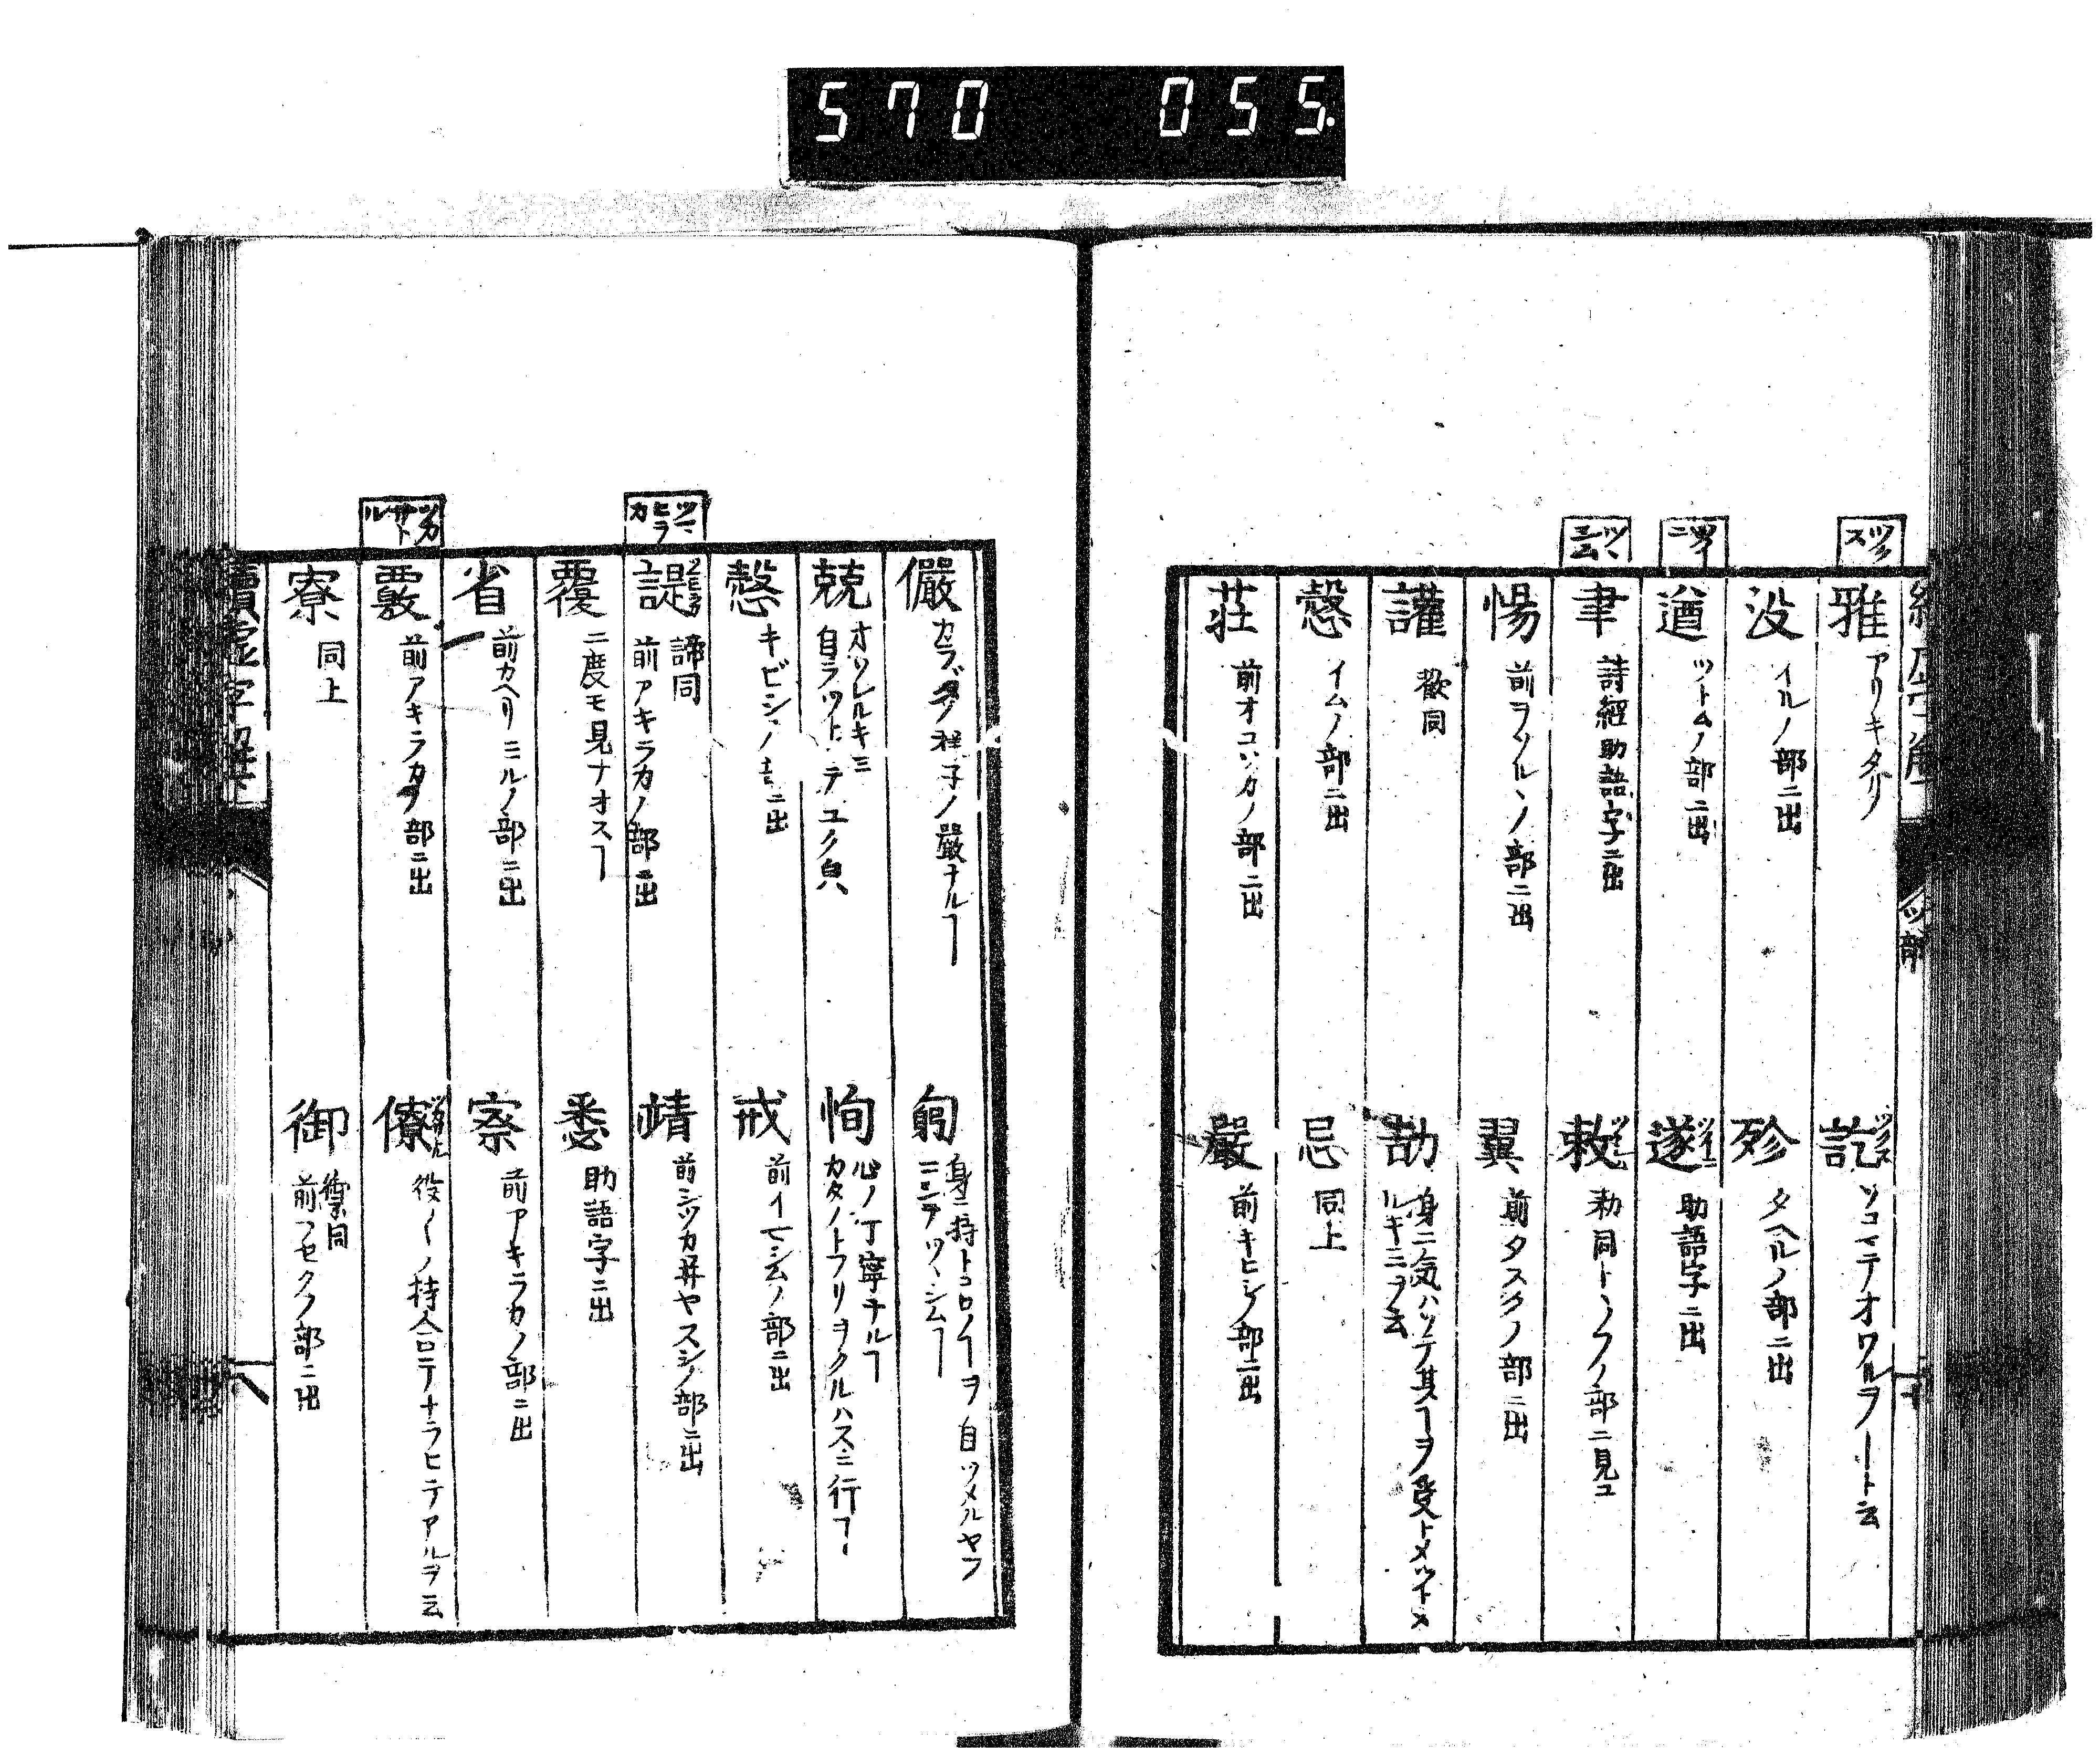 570 055.
ツ部
雅 アリキタリ
訖 ソコマテオワルヲ
没 イルノ部ニ出
殄 タヘルノ部ニ出
遒 ツトムノ部ニ出
遂 助語字ニ出
聿 詩経助語字ニ出
敕 勑同トヽノフノ部ニ見ユ
惕 前ヲソルヽノ部ニ出
翼 前タスクノ部ニ出
讙 歡同
劼 身ニ気ハツテ其ヿヲ受トメ
ルキミヲ云
愨 イムノ部ニ出
忌 同上
莊 前オコソカノ部ニ出
嚴 前キヒシノ部ニ出
儼 カラダノ様子ノ嚴ナルヿ
躬 身ニ持トコロノヿヲ自ツメルヤフ
ニシテツヽシムヿ
兢 オソレルキミ
自ラツトテユク皃
恂 心ノ丁寧ナルヿ
カタノトフリヲクルハスニ行フヿ
愨 キビシノ
戒 前イマシムノ部ニ出
諟 諦同
前アキラカノ部ニ出
靖 前シツカ并ヤスシノ部ニ出
覆 二度モ見ナオスヿ
悉 助語字ニ出
省 前カヘリミルノ部ニ出
察 前アキラカノ部ニ出
覈 前アキラカノ部ニ出
僚 役〳〵ノ持合テナラヒテアルヲ云
寮 同上
御 禦同
前フセクノ部ニ出
續虚字解